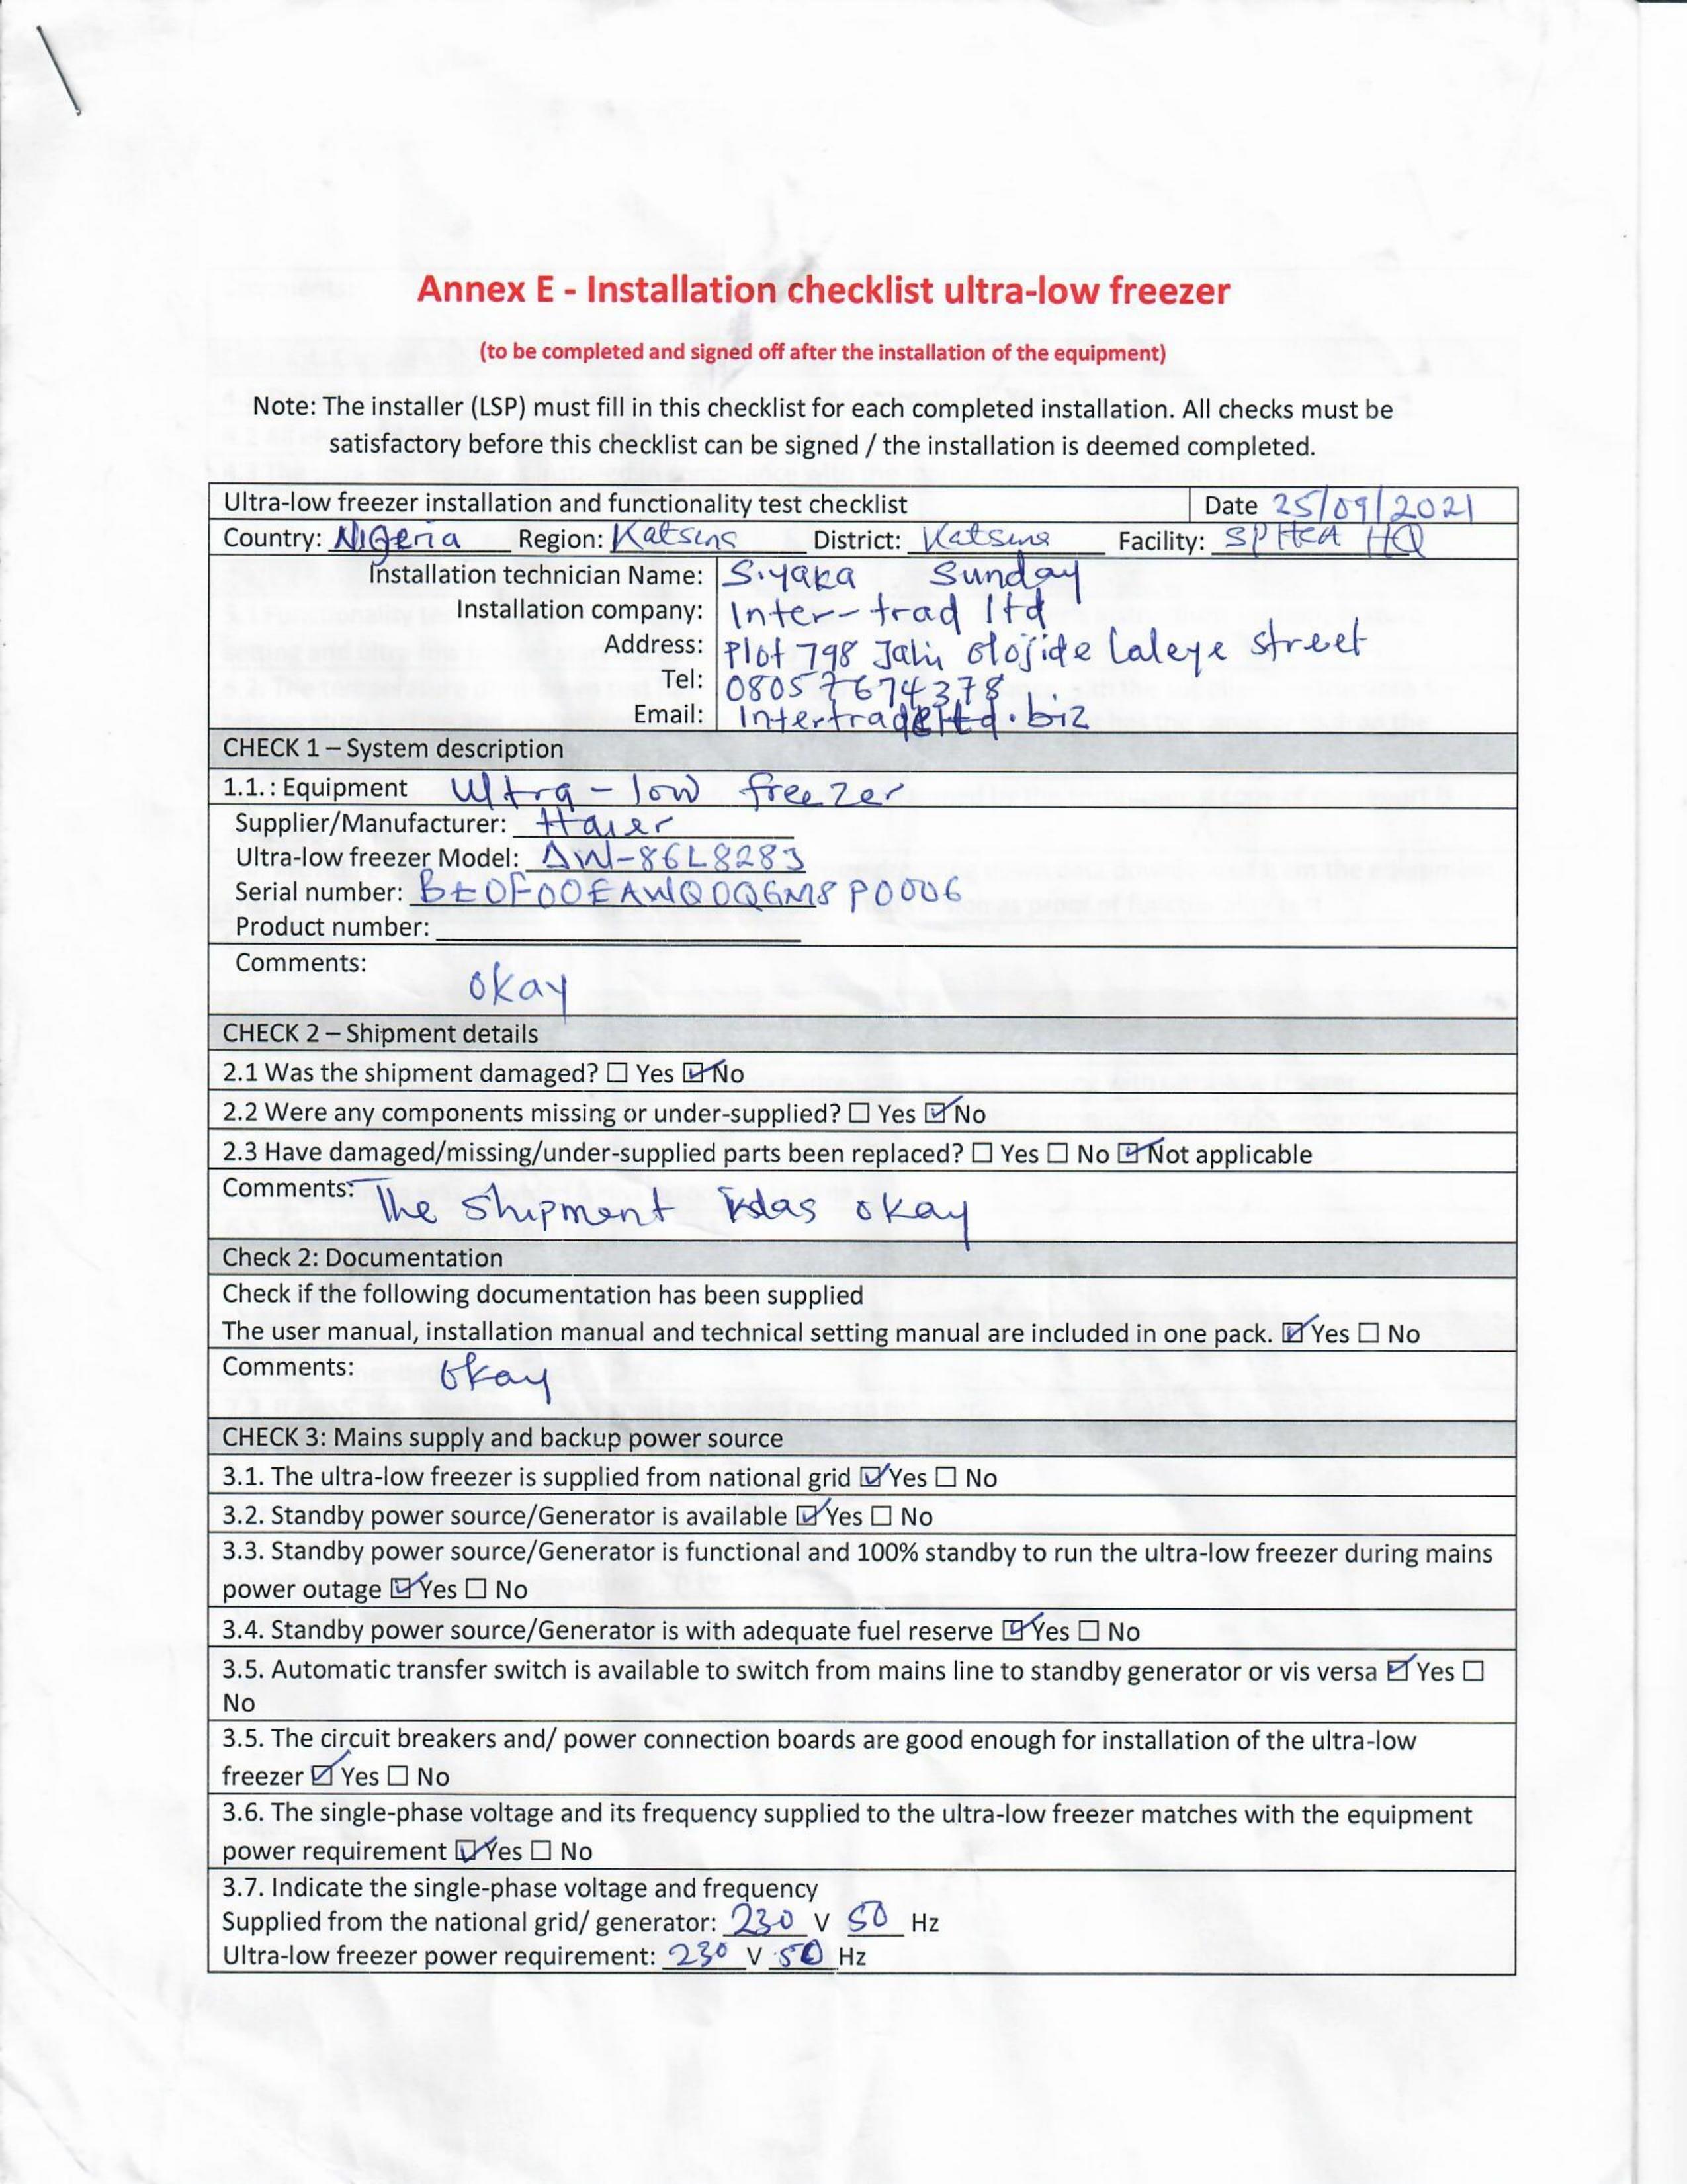 Annex E - Installation checklist ultra-low freezer
(to be completed and signed off after the installation of the equipment)
Note: The installer (LSP) must fill in this checklist for each completed installation. All checks must be
satisfactory before this checklist can be signed / the installation is deemed completed.
Ultra-low freezer installation and functionality test checklist Date 25/09/2021
Country: Nigeria Region: Katsina District: Katsina Facility: SPHCA HQ
Installation technician Name: Siyaka Sunday
Installation company: Inter-trad ltd
Address: Plot 798 Olojide Laleye street
Tel: 08057674378
Email: Intertrade ltd.biz
CHECK 1 – System description
1.1.: Equipment Ultra-low freezer
Supplier/Manufacturer: Haier
Ultra-low freezer Model: DW-86L828J
Serial number: BE0F00EAWQ0QGM8P0006
Product number:
Comments: okay
CHECK 2 – Shipment details
2.1 Was the shipment damaged? ☐ Yes ☑ No
2.2 Were any components missing or under-supplied? ☐ Yes ☑ No
2.3 Have damaged/missing/under-supplied parts been replaced? ☐ Yes ☐ No ☑ Not applicable
Comments: The shipment was okay
Check 2: Documentation
Check if the following documentation has been supplied
The user manual, installation manual and technical setting manual are included in one pack. ☑ Yes ☐ No
Comments: Okay
CHECK 3: Mains supply and backup power source
3.1. The ultra-low freezer is supplied from national grid ☑ Yes ☐ No
3.2. Standby power source/Generator is available ☑ Yes ☐ No
3.3. Standby power source/Generator is functional and 100% standby to run the ultra-low freezer during mains
power outage ☑ Yes ☐ No
3.4. Standby power source/Generator is with adequate fuel reserve ☑ Yes ☐ No
3.5. Automatic transfer switch is available to switch from mains line to standby generator or vis versa ☑ Yes ☐
No
3.5. The circuit breakers and/ power connection boards are good enough for installation of the ultra-low
freezer ☑ Yes ☐ No
3.6. The single-phase voltage and its frequency supplied to the ultra-low freezer matches with the equipment
power requirement ☑ Yes ☐ No
3.7. Indicate the single-phase voltage and frequency
Supplied from the national grid/ generator: 230 V 50 Hz
Ultra-low freezer power requirement: 230 V 50 Hz